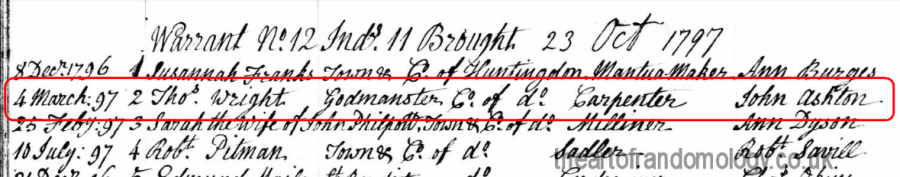 Warrant No. 12 Inds. 11 Brought 23 Oct 1797
8 Decr. 1796 1 Susannah Franks Town & Co. of Huntingdon Mantua-Maker Ann Burges
4 March: 97 2 Thos. Wright Godmanster Co. of do. Carpenter John Ashton
25 Feby: 97 3 Sarah the Wife of John Philpott, Town & Co. of do. Milliner Ann Dyson
10 July: 97 4 Robt. Pitman Town & Co. of do. Sadler Robt. Savill
theartofrandomology.co.uk
5 Edmund